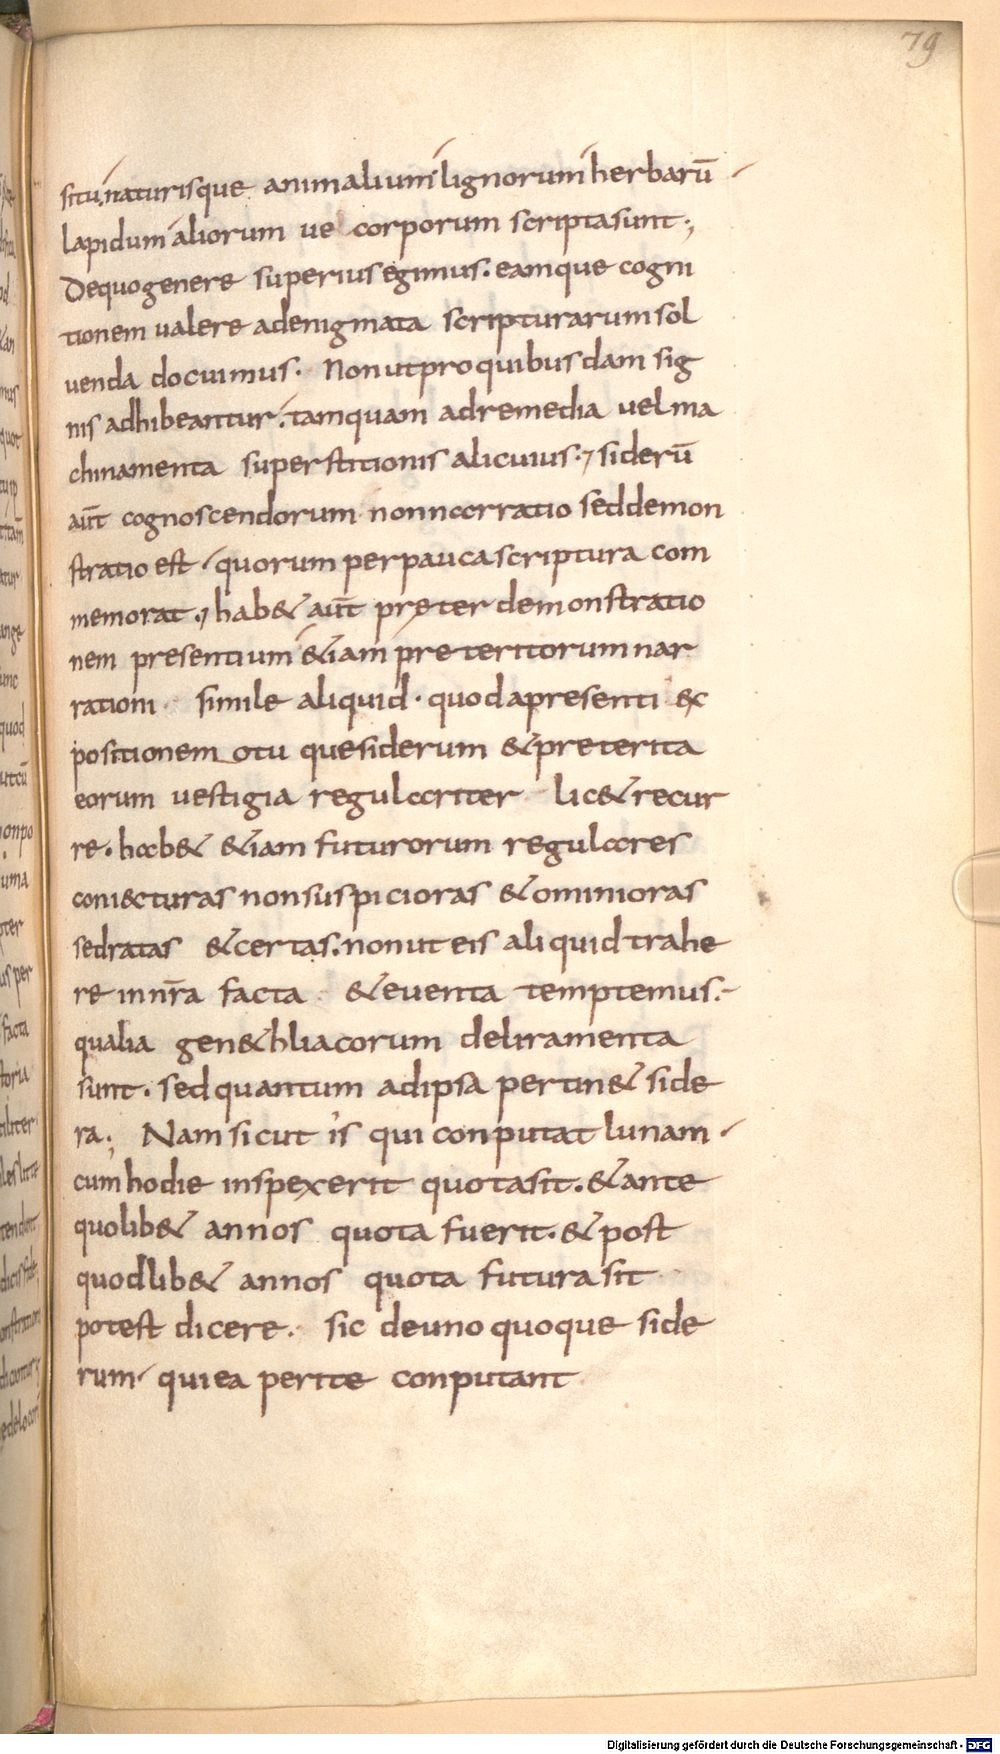 79
situ. naturisque animalium lignorum herbarū
lapidum aliorum ue corporum scripta sunt;
De quo genere superius egimus. eamque cogni
tionem ualere ad enigmata scripturarum sol
uenda docuimus. Non ut pro quibusdam sig
nis adhibeantur. tamquam ad remedia uel ma
chinamenta superstitionis alicuius. siderū
aūt cognoscendorum non narratio sed demon
stratio est quorum perpauca scriptura com
memorat. hab& aūt pręter demonstratio
nem presentium &iam preteritorum nar
rationi simile aliquid. quod a presenti &c
positionem otu que siderum & preterita
eorum uestigia regulariter lic& recur
re. hab& &iam futurorum regulares
coni&cturas non suspicioras & ominioras
sed ratas & certas. non ut eis aliquid trahe
re in nr̄a facta & euenta temptemus.
qualia gen&hliacorum deliramenta
sunt. sed quantum ad ipsa pertin& side
ra. Nam sicut is qui conputat lunam
cum hodie inspexerit quota sit. & ante
quolib& annos quota fuerit. & post
quodlib& annos quota futura sit
potest dicere. sic de uno quoque side
rum qui ea perite conputant
Digitalisierung gefördert durch die Deutsche Forschungsgemeinschaft - DFG